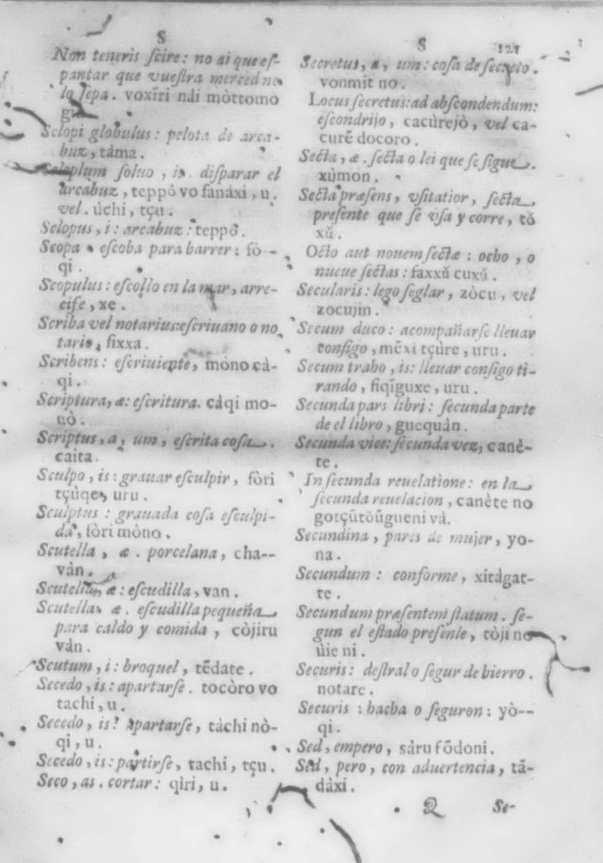 S
Non teneris scire: no ai que es-
pantar que vuestra merced no
lo sepa. voxiri nài mòttomo
Sclopi globulus: pelota de arca-
buz, tàma.
soluo, is. disparar el
arcabuz, teppô vo fanàxi, u.
vel. ùchi, tçu.
Sclopus, i: arcabuz: teppô.
Scopa escoba para barrer: fò--
qi.
Scopulus: escollo en la mar, arre-
cife, xe.
Scriba vel notarius: escriuano o no
tario, fixxa.
Scribens: escriuiente, mòno cà-
qi.
Scriptura, æ: escritura. càqi mo-
nò.
Scriptus, a, um, escrita cosa.
caita.
Sculpo, is: grauar esculpir, fòri
tçùqe, uru.
Sculptus: grauada cosa esculpi-
da, fòri mòno.
Scutella, æ. porcelana, cha--
vàn.
Scutella, æ: escudilla, van.
Scutella, æ. escudilla pequeña
para caldo y comida, còjiru
vàn.
Scutum, i: broquel, tēdate.
Secedo, is: apartarse. tocòro vo
tachi, u.
Secedo, is: apartarse, tàchi nò-
qi, u.
Secedo, is: partirse, tachi, tçu.
Seco, as. cortar: qìri, u.
S 121
Secretus, a, um: cosa de secreto.
vonmit no.
Locus secretus: ad abscondendum:
escondrijo, cacùrejò, vel ca-
curē docoro.
Secta, æ. secta o lei que se sigue.
xùmon.
Secta præsens, vsitatior, secta
presente que se vsa y corre, tǒ
xǔ.
Octo aut nouem sectæ: ocho, o
nueue sectas: faxxǔ cuxǔ.
Secularis: lego seglar, zòcu, vel
zocujin.
Secum duco: acompañarse lleuar
consigo, mēxi tçùre, uru.
Secum traho, is: lleuar consigo ti-
rando, fiqiguxe, uru.
Secunda pars libri: secunda parte
de el libro, guequàn.
Secunda vice: secunda vez, canè-
te.
In secunda reuelatione: en la
secunda reuelacion, canète no
gotçǔtôǔgueni và.
Secundina, pares de mujer, yo-
na.
Secundum: conforme, xitàgat-
te.
Secundum præsentem statum. se-
gun el estado presente, tòji no
ùie ni.
Securis: destral o segur de hierro.
notare.
Securis: hacha o seguron: yò--
qi.
Sed, empero, sàru fōdoni.
Sed, pero, con aduertencia, tā-
dàxi.
Q Se-